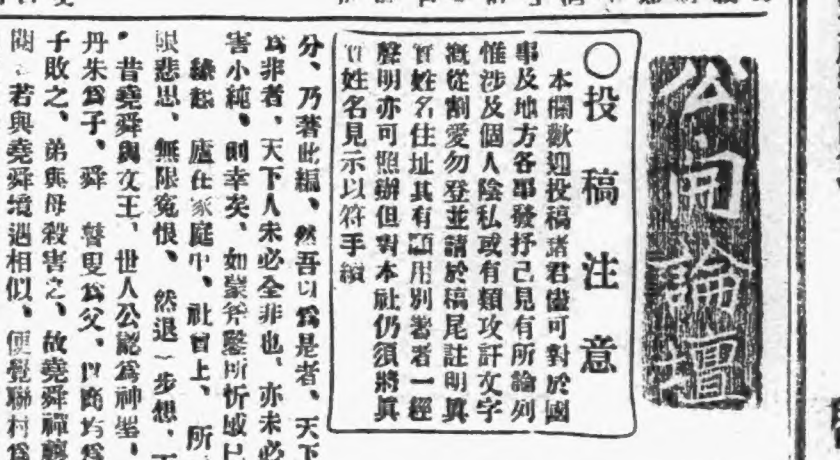 公開論壇
○投稿注意
本欄歡迎投稿諸君儘可對於國
事及地方各事發抒己見有所論列
惟涉及個人陰私或有類攻訐文字
概從割愛勿登並請於稿尾註明眞
實姓名住址其有願用別署者一經
聲明亦可照辦但對本社仍須將眞
實姓名見示以符手續
分、乃著此編、然吾以爲是者、天下
爲非者、天下人未必全非也、亦未必
害小純、則幸矣、如蒙斧鑒所折
緣起 廬在家庭中、社會上、所
悲思、無限寃恨、然退一步想、
昔堯舜與文王、世人公認爲神聖、
丹朱爲子、舜 瞽叟爲父、以商均爲
子敗之、弟與母殺害之、故堯舜禪
若與堯舜境遇相似、便覺聯村爲